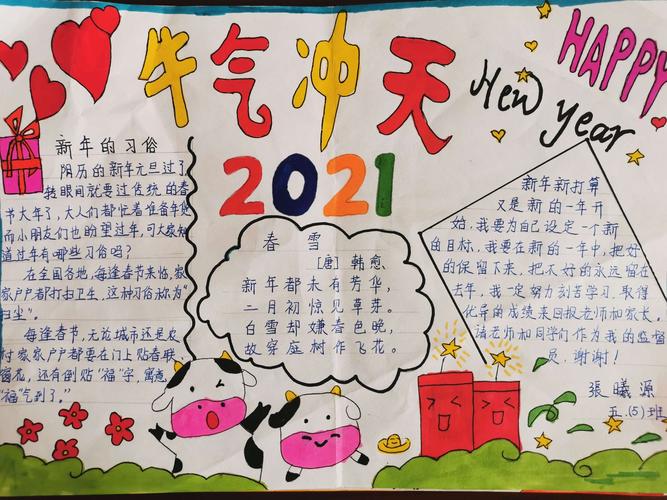 牛气冲天
HAPPY
New Year
2021
新年的习俗
阳历的新年元旦过了
转眼间就要过传统的春
节大年了,大人们都忙着准备年货
而小朋友们也盼望过年,可大家知
道过年有哪些习俗吗?
在全国各地,每逢春节来临,家
家户户都打扫卫生,这种习俗称为“
扫尘”。
每逢春节,无论城市还是农
村家家户户都要在门上贴春联、
窗花,还有倒贴“福”字,寓意
“福”气到了。”
春雪
[唐]韩愈、
新年都未有芳华,
二月初惊见草芽。
白雪却嫌春色晚,
故穿庭树作飞花。
新年新打算
又是新的一年开
始,我要为自己设定一个新
的目标,我要在新的一年中,把好
的保留下来,把不好的永远留在
去年,我一定努力刻苦学习,取得
优异的成绩来回报老师和家长,
请老师和同学们作为我的监督
员,谢谢!
张曦源
五.(5)班